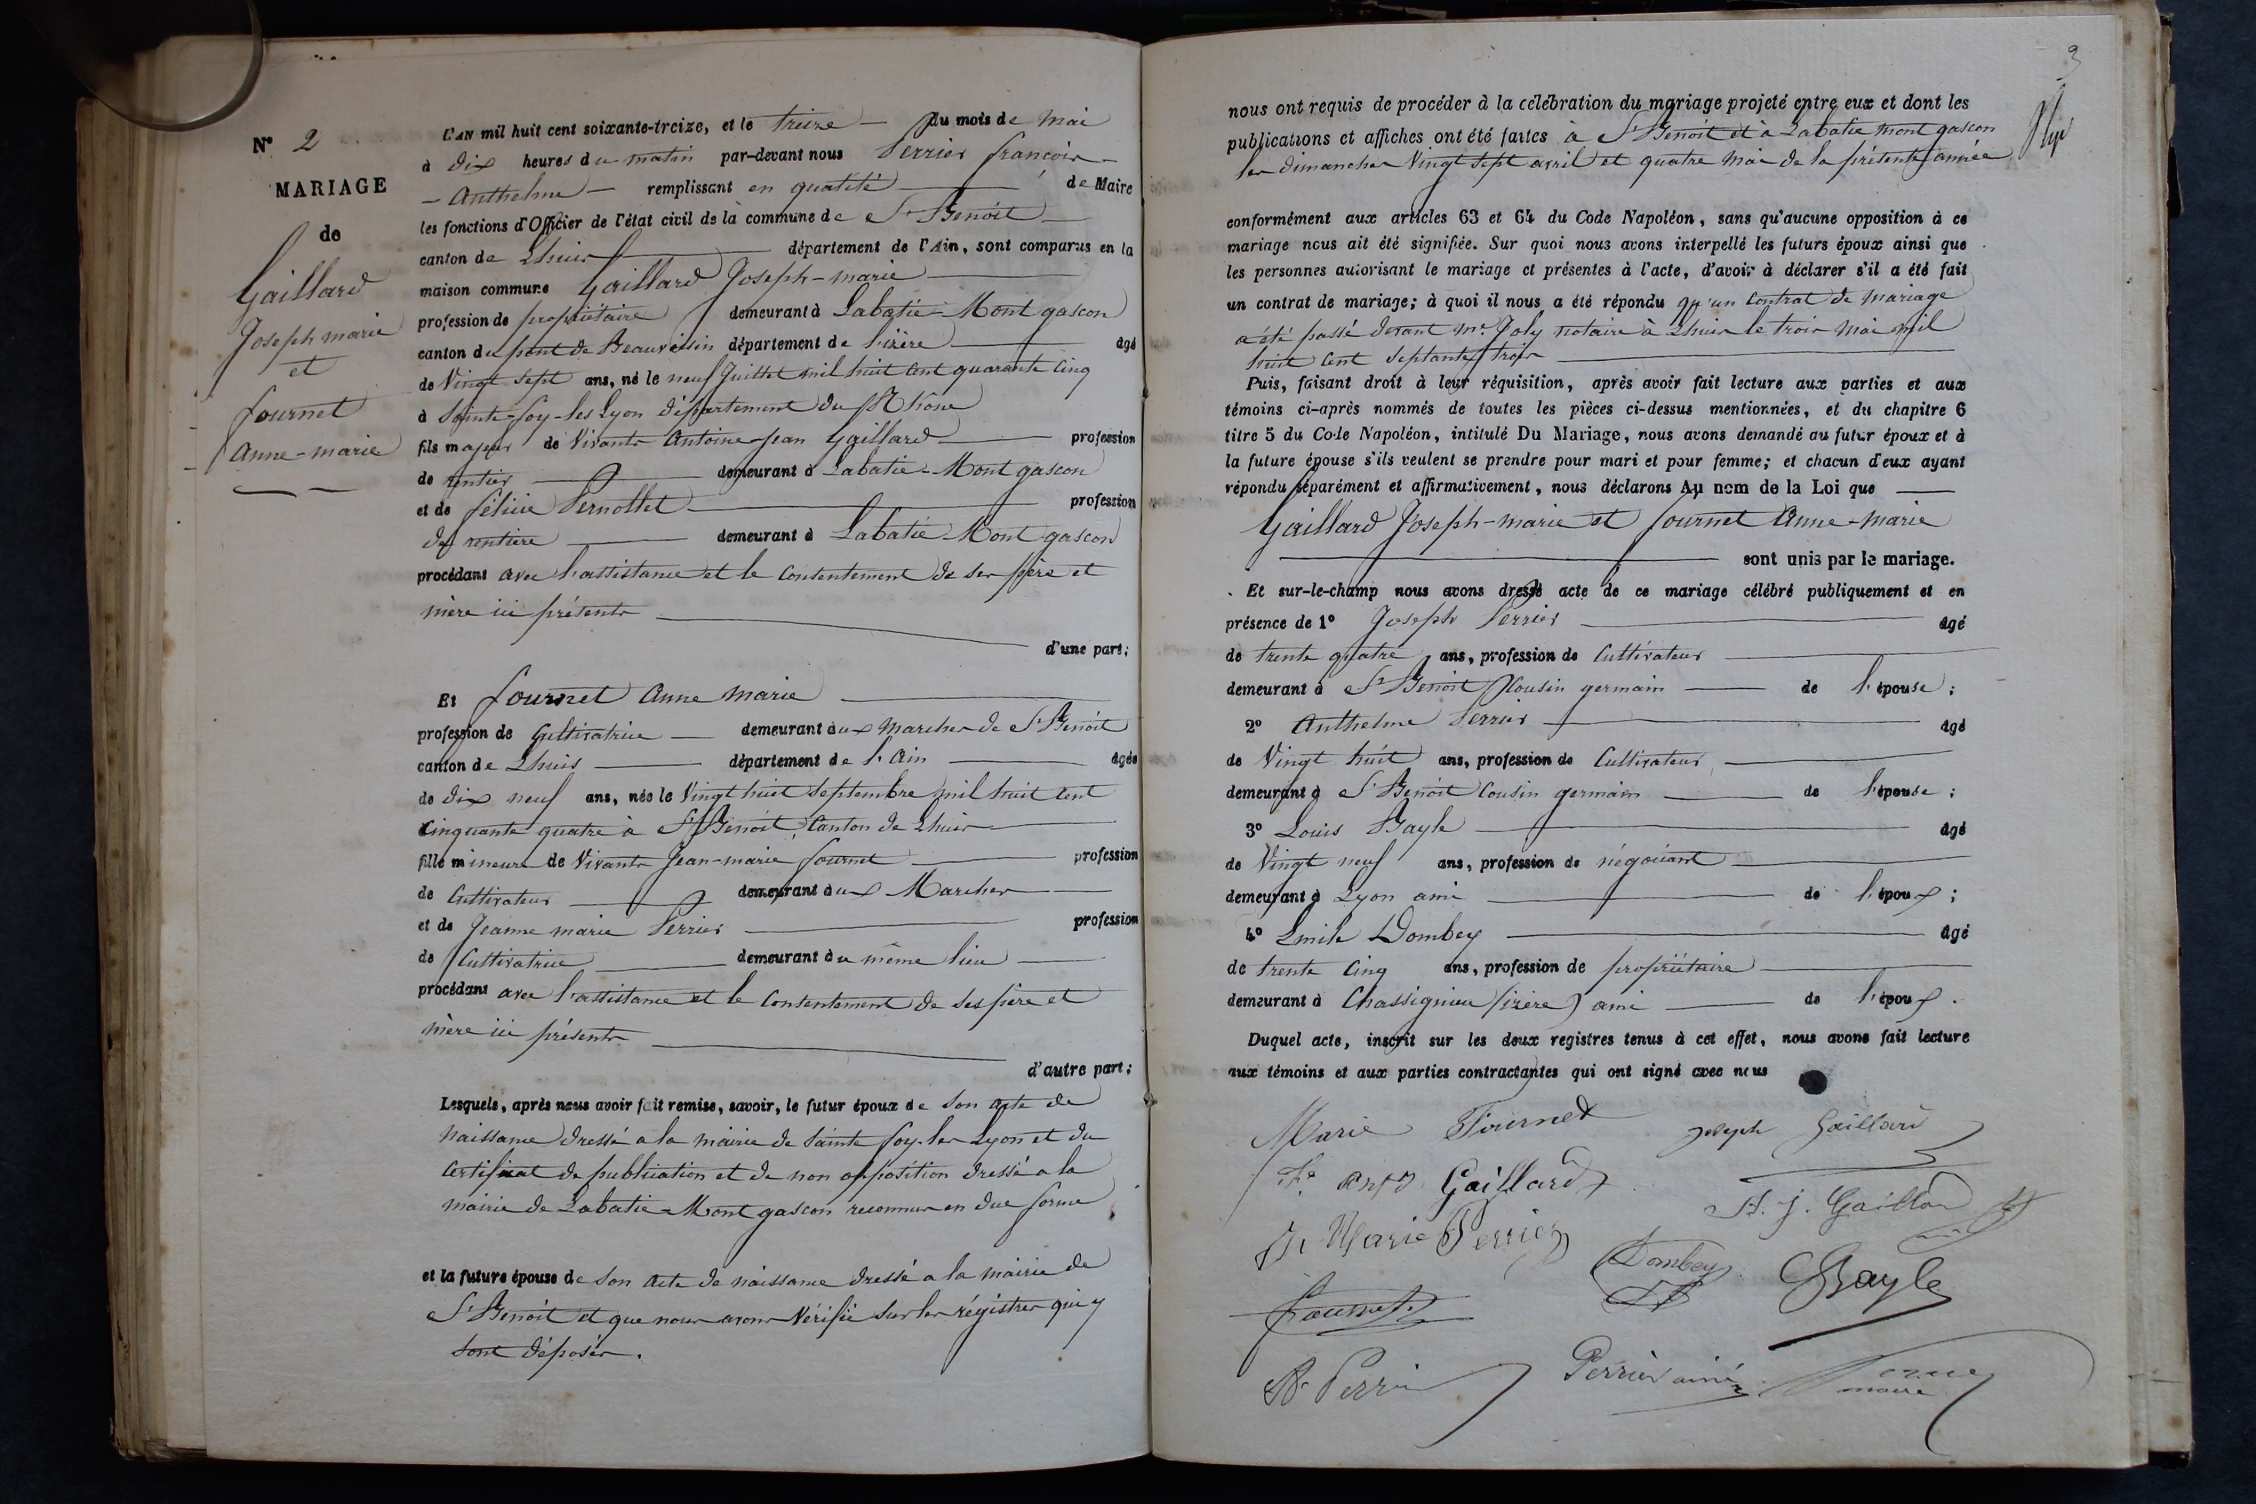 N° 2
MARIAGE
de
Gaillard
Joseph marie
et
fournet
Anne-marie
L'AN mil huit cent soixante-treize, et le treize du mois de Mai
à dix heures du matin par-devant nous Perrier françois
Anthelme remplissant en qualité de Maire
les fonctions d'Officier de l'état civil de la commune de St Benoit
canton de Lhuis département de l'Ain, sont comparus en la
maison commune Gaillard Joseph-marie
profession de propriétaire demeurant à Labatie-Mont gascon
canton du pont de Beauvoisin département de l'izère âgé
de Vingt sept ans, né le neuf Juillet mil huit Cent quarante Cinq
à Sainte-foy-les Lyon département du Rhône
fils majeur de Vivants Antoine Jean Gaillard profession
de rentier demeurant à Labatie-Mont gascon
et de félicie Pernollet profession
de rentière demeurant à Labatie-Mont gascon
procédant avec l'assistance et le Consentement de ses père et
mère ici présents
d'une part;
Et fournet Anne marie
profession de Cultivatrice demeurant aux Marches de St Benoit
canton de Lhuis département de l'Ain âgée
de dix neuf ans, née le Vingt huit Septembre mil huit Cent
Cinquante quatre à St Benoit, Canton de Lhuis
fille mineure de Vivants Jean-marie fournet profession
de Cultivateur demeurant aux Marches
et de Jeanne marie Perrier profession
de Cultivatrice demeurant au même lieu
procédant avec l'assistance et le Consentement de ses père et
mère ici présents
d'autre part;
Lesquels, après nous avoir fait remise, savoir, le futur époux de Son Acte de
Naissance dressé a la mairie de Sainte foy-les Lyon et du
Certificat de publication et de non opposition dressé a la
mairie de Labatie-Mont gascon reconnus en due forme
et la future épouse de Son Acte de naissance dressé a la mairie de
St Benoit et que nous avons Vérifié Sur les régistres qui y
Sont déposés.
3
nous ont requis de procéder à la célébration du mariage projeté entre eux et dont les
publications et affiches ont été faites à St Benoit et à Labatie mont gascon
les dimanches Vingt sept avril et quatre Mai de la présente année
conformément aux articles 63 et 64 du Code Napoléon, sans qu'aucune opposition à ce
mariage nous ait été signifiée. Sur quoi nous avons interpellé les futurs époux ainsi que
les personnes autorisant le mariage et présentes à l'acte, d'avoir à déclarer s'il a été fait
un contrat de mariage; à quoi il nous a été répondu qu'un Contrat de Mariage
a été passé devant me Joly notaire à Lhuis le trois Mai mil
huit Cent Septante trois
Puis, faisant droit à leur réquisition, après avoir fait lecture aux parties et aux
témoins ci-après nommés de toutes les pièces ci-dessus mentionnées, et du chapitre 6
titre 5 du Code Napoléon, intitulé Du Mariage, nous avons demandé au futur époux et à
la future épouse s'ils veulent se prendre pour mari et pour femme; et chacun d'eux ayant
répondu séparément et affirmativement, nous déclarons Au nom de la Loi que
Gaillard Joseph-marie et fournet Anne-marie
sont unis par le mariage.
Et sur-le-champ nous avons dressé acte de ce mariage célébré publiquement et en
présence de 1° Joseph Perrier âgé
de trente quatre ans, profession de Cultivateur
demeurant à St Benoit Cousin germain de l'épouse;
2° Anthelme Perrier âgé
de Vingt huit ans, profession de Cultivateur
demeurant à St Benoit Cousin germain de l'épouse;
3° Louis Bayle âgé
de Vingt neuf ans, profession de négociant
demeurant à Lyon ami de l'époux;
4° Emile Dombey âgé
de trente Cinq ans, profession de propriétaire
demeurant à Chassignieu (izère) ami de l'époux.
Duquel acte, inscrit sur les deux registres tenus à cet effet, nous avons fait lecture
aux témoins et aux parties contractantes qui ont signé avec nous
Marie Fournet Joseph Gaillard
Gaillard A. J. Gaillard
Marie Perrier Dombey Bayle
fournet
Perrier ainé
maire